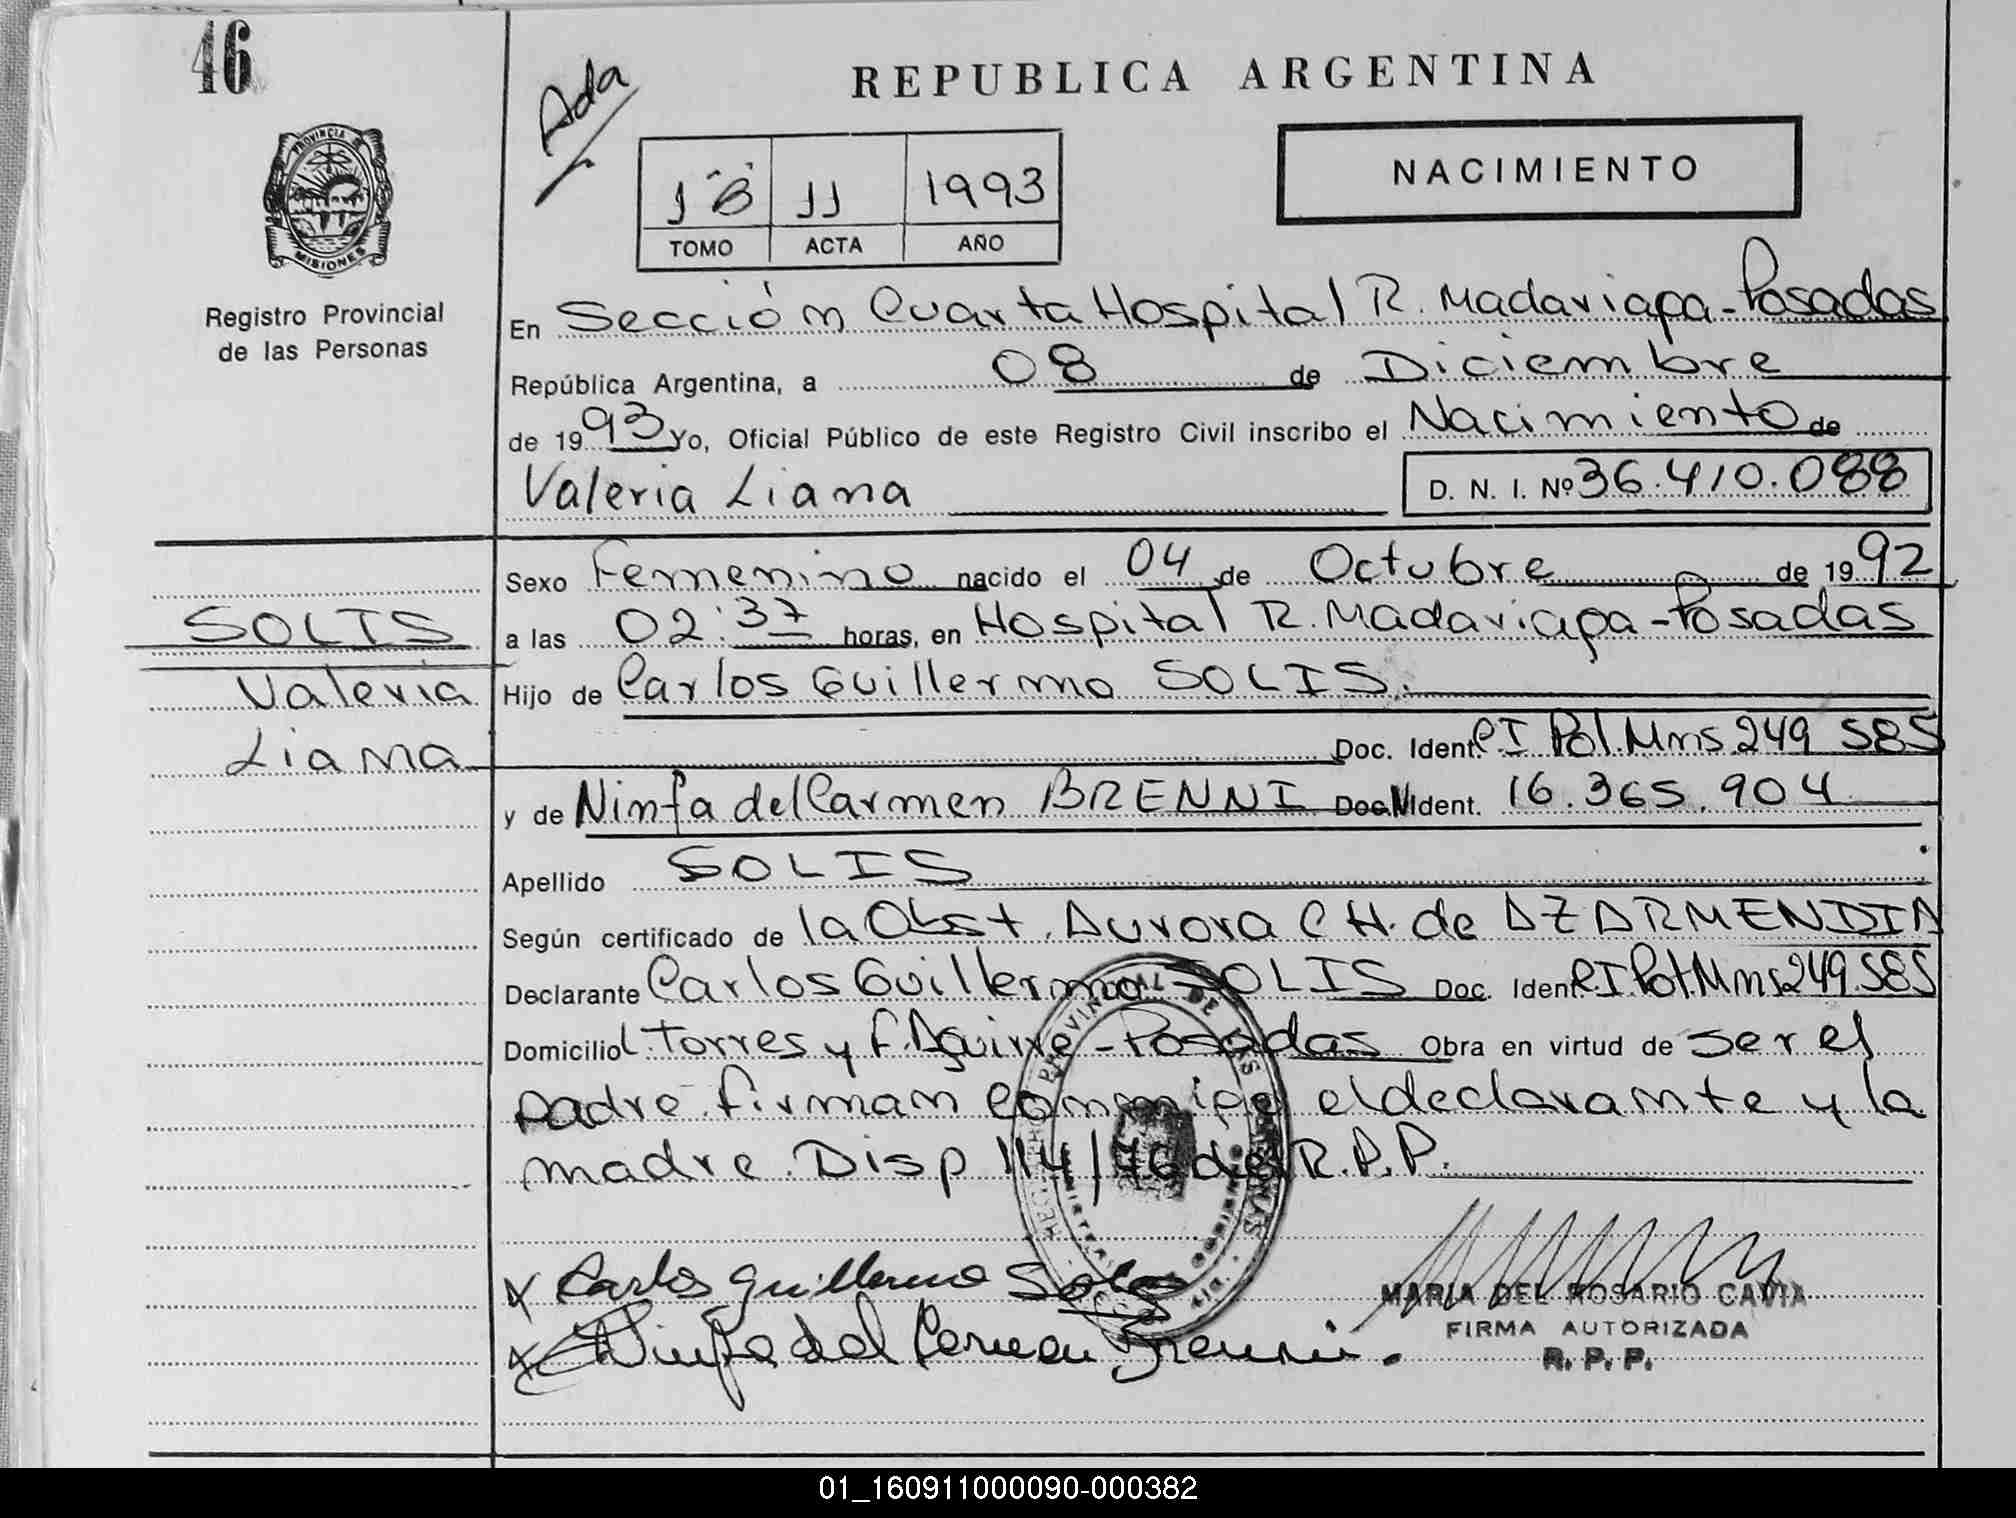 46
Ada
REPUBLICA ARGENTINA
NACIMIENTO
1 "B" 11 1993
TOMO ACTA AÑO
PROVINCIA
MISIONES
Registro Provincial
de las Personas
En Sección Cuarta Hospital R. Madariaga - Posadas
República Argentina, a 08 de Diciembre
de 1993 Yo, Oficial Público de este Registro Civil inscribo el Nacimiento de
Valeria Liana D. N. I. Nº 36.410.088
Sexo Femenino nacido el 04 de Octubre de 1992
SOLIS
a las 02:37 horas, en Hospital R. Madariaga - Posadas
Valeria
Hijo de Carlos Guillermo SOLIS.
Liana
Doc. Ident. C.I Pol. Mns 249 585
y de Ninfa del Carmen BRENNI Doc. Ident. 16.365.904
Apellido SOLIS
Según certificado de la Obst. Aurora CH. de AZARMENDIA
Declarante Carlos Guillermo SOLIS Doc. Ident. C.I. Pol. Mns 249.585
Domicilio L. Torres y F. Aguirre - Posadas Obra en virtud de ser el
padre. firman conmigo el declarante y la
madre. Disp 114/76 del R.P.P.
PROVINCIAL DE LAS PERSONAS
Carlos Guillermo Solis
Ninfa del Carmen Brenni.
MARIA DEL ROSARIO CAVIA
FIRMA AUTORIZADA
R. P. P.
01_160911000090-000382